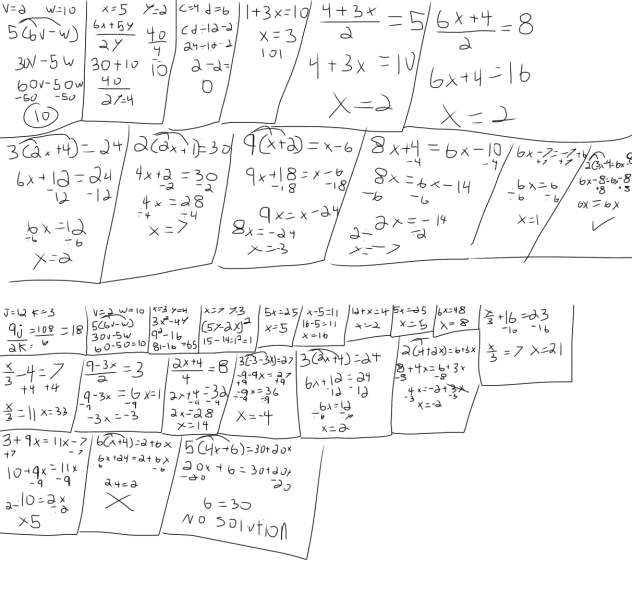 V=2 W=10
5(6v-w)
30V-5W
60v-50w
-50 -50
10
x=5 y=2
6x+5y
2y
30+10
40
2y=4
40
4
10
c=4 d=6
(d÷12-2
24÷12-2
2-2=
0
1+3x=10
x=3
101
4+3x
2
=5
4+3x=10
x=2
6x+4
2
=8
6x+4=16
x=2
3(2x+4)=24
6x+12=24
-12 -12
6x=12
÷6 ÷6
x=2
2(2x+1)=30
4x+2=30
-2 -2
4x=28
÷4 ÷4
x=7
9(x+2)=x-6
9x+18=x-6
-18 -18
9x=x-24
8x=-24
x=-3
8x+4=6x-10
-4 -4
8x=6x-14
-6 -6
2x=-14
2÷ ÷2
x=-7
6x-7=-7+6
+7 +7
6x=6
÷6 ÷6
x=1
2(3x-4=6x-8
6x-8=6x-8
+8 +8
6x=6x
✓
J=12 K=3
9j = 108 = 18
2K= 6
V=2 W=10
5(6v-w)
30v-5w
60-50=10
x=3 y=4
3x²-4y
9²-16
81-16=65
x=7 y=3
(5y-2x)²
15-14=1²=1
5x=25
x=5
x-5=11
16-5=11
x=16
12+x=4
x=2
5x=25
x=5
6x=48
x=8
x/3+16=23
-16 -16
x/3=7 x=21
x/3-4=7
+4 +4
x/3=11 x=33
9-3x
2
=3
9-3x=6 x=1
-9 -9
-3x=-3
2x+4
4
=8
2x+4=32
-4 -4
2x=28
x=14
3(-3-3x)=27
+9 -9-9x=27 +9
-9x=36
÷9 ÷9
x=-4
3(2x+4)=24
6x+12=24
-12 -12
6x=12
÷6 ÷6
x=2
2(4+2x)=6+3x
8+4x=6+3x
-8 -8
4x=-2+3x
-3 -3
x=-2
3+9x=11x-7
+7 -7
10+9x=11x
-9 -9
10=2x
2÷ ÷2
x5
6(x+4)=2+6x
6x+24=2+6x
-6 -6
24=2
X
5(4x+6)=30+20x
20x+6=30+20x
-20 -20
6=30
NO SOLUTION